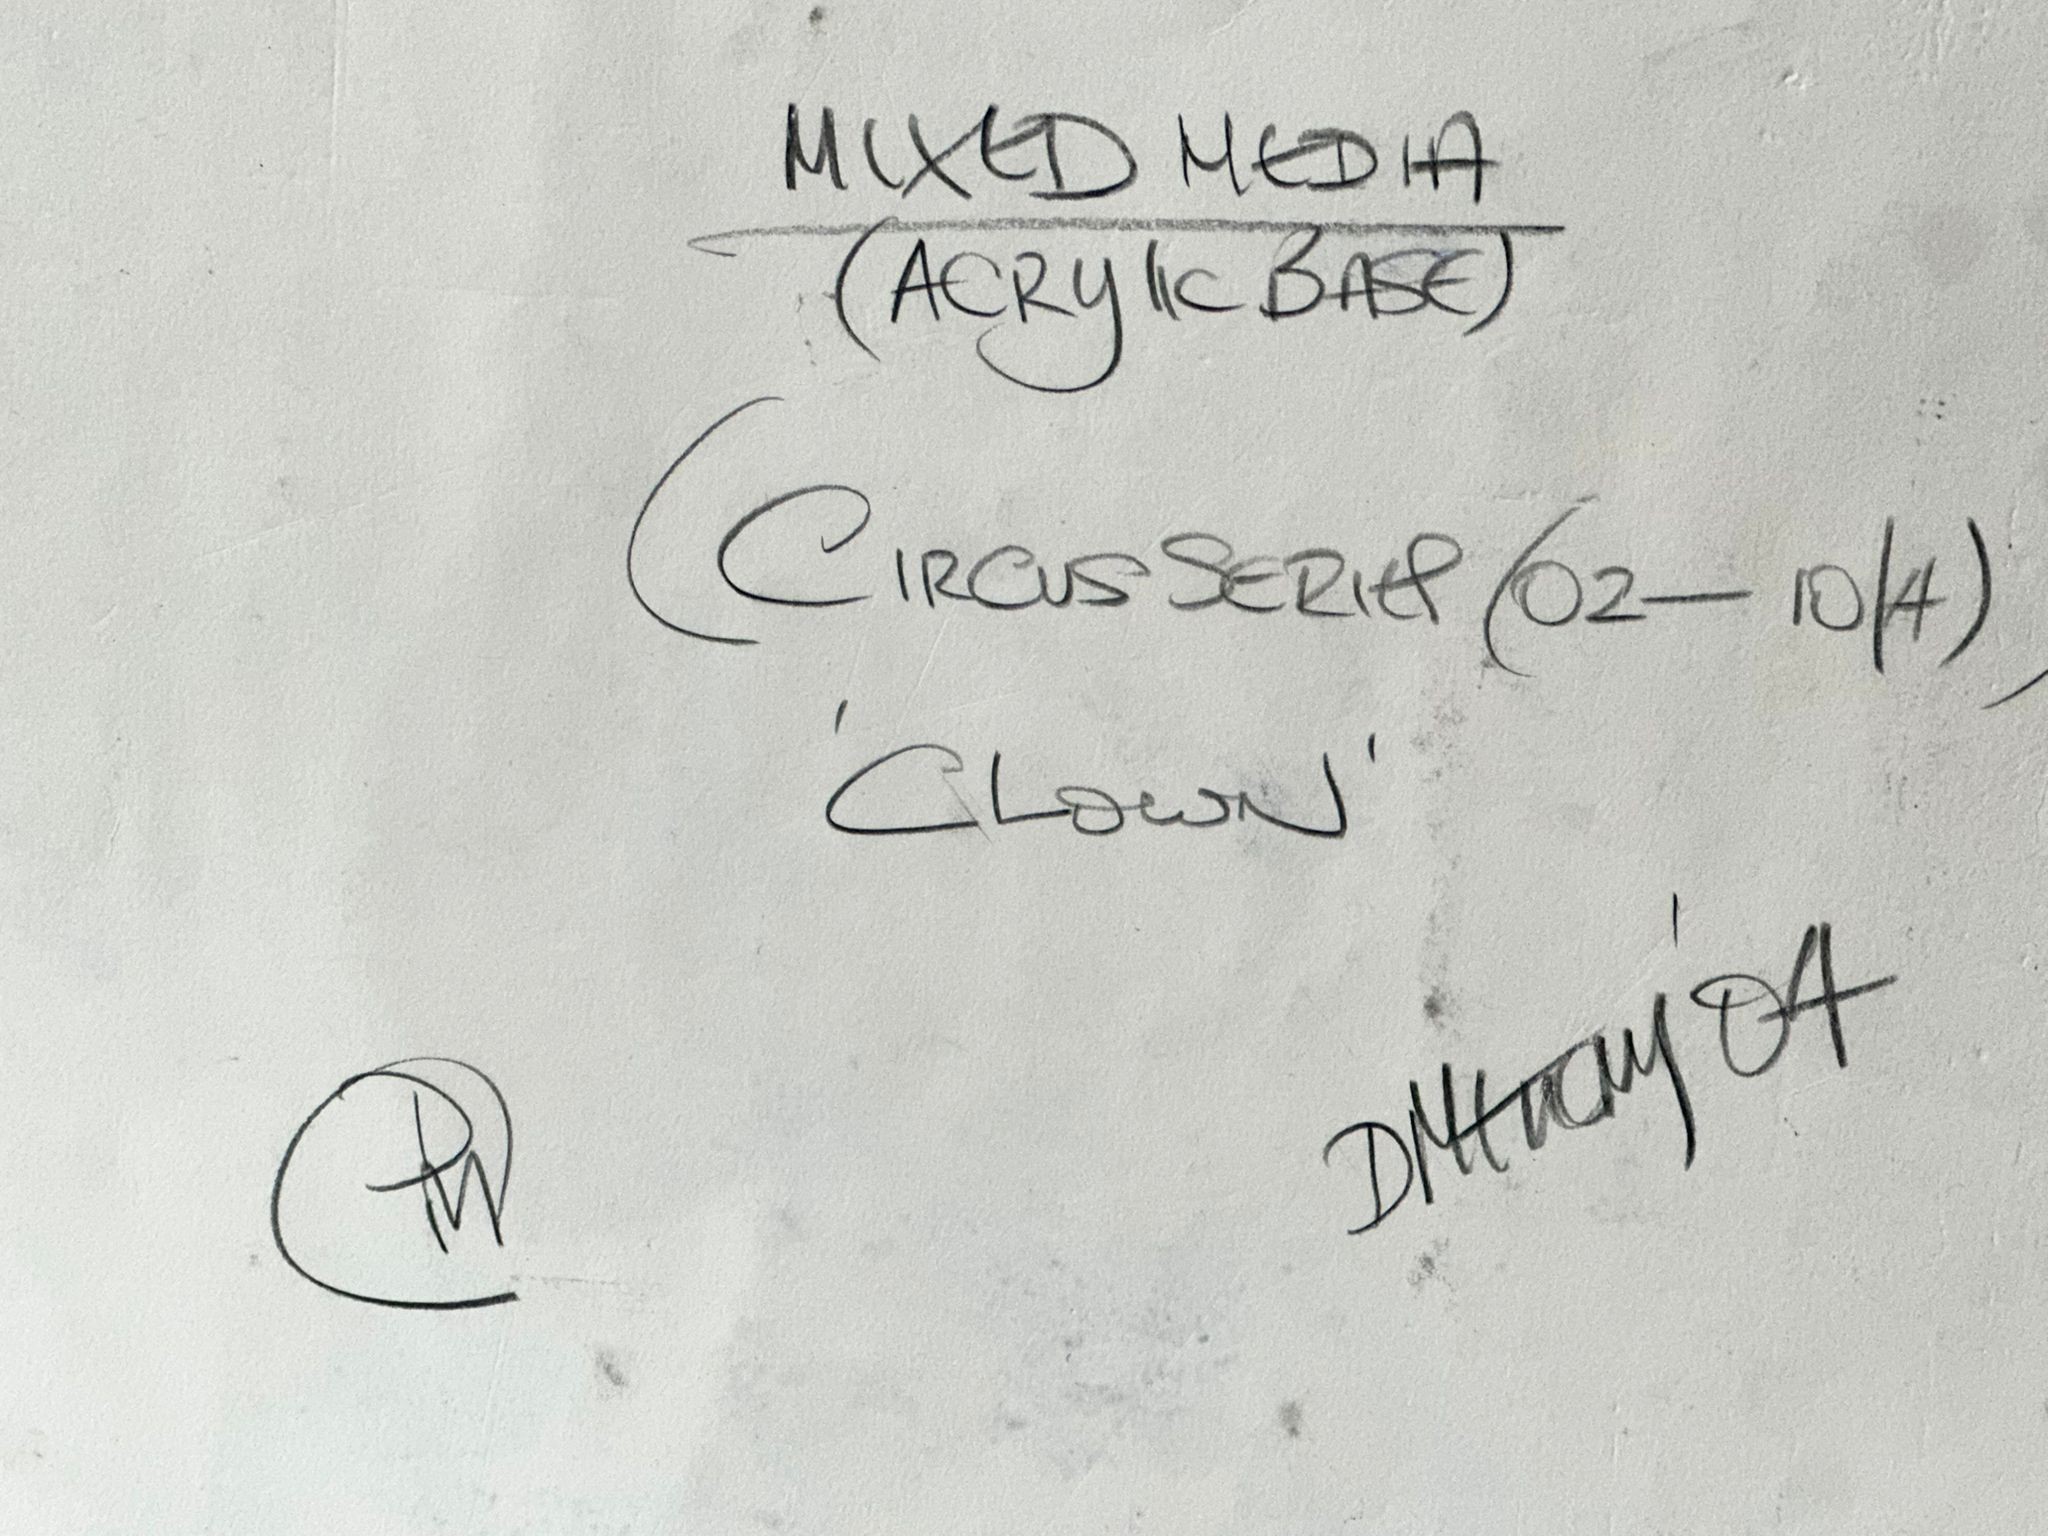 MIXED MEDIA
(ACRYLIC BASE)
(CIRCUS SERIES (02 — 10/4)
'CLOWN'
'04